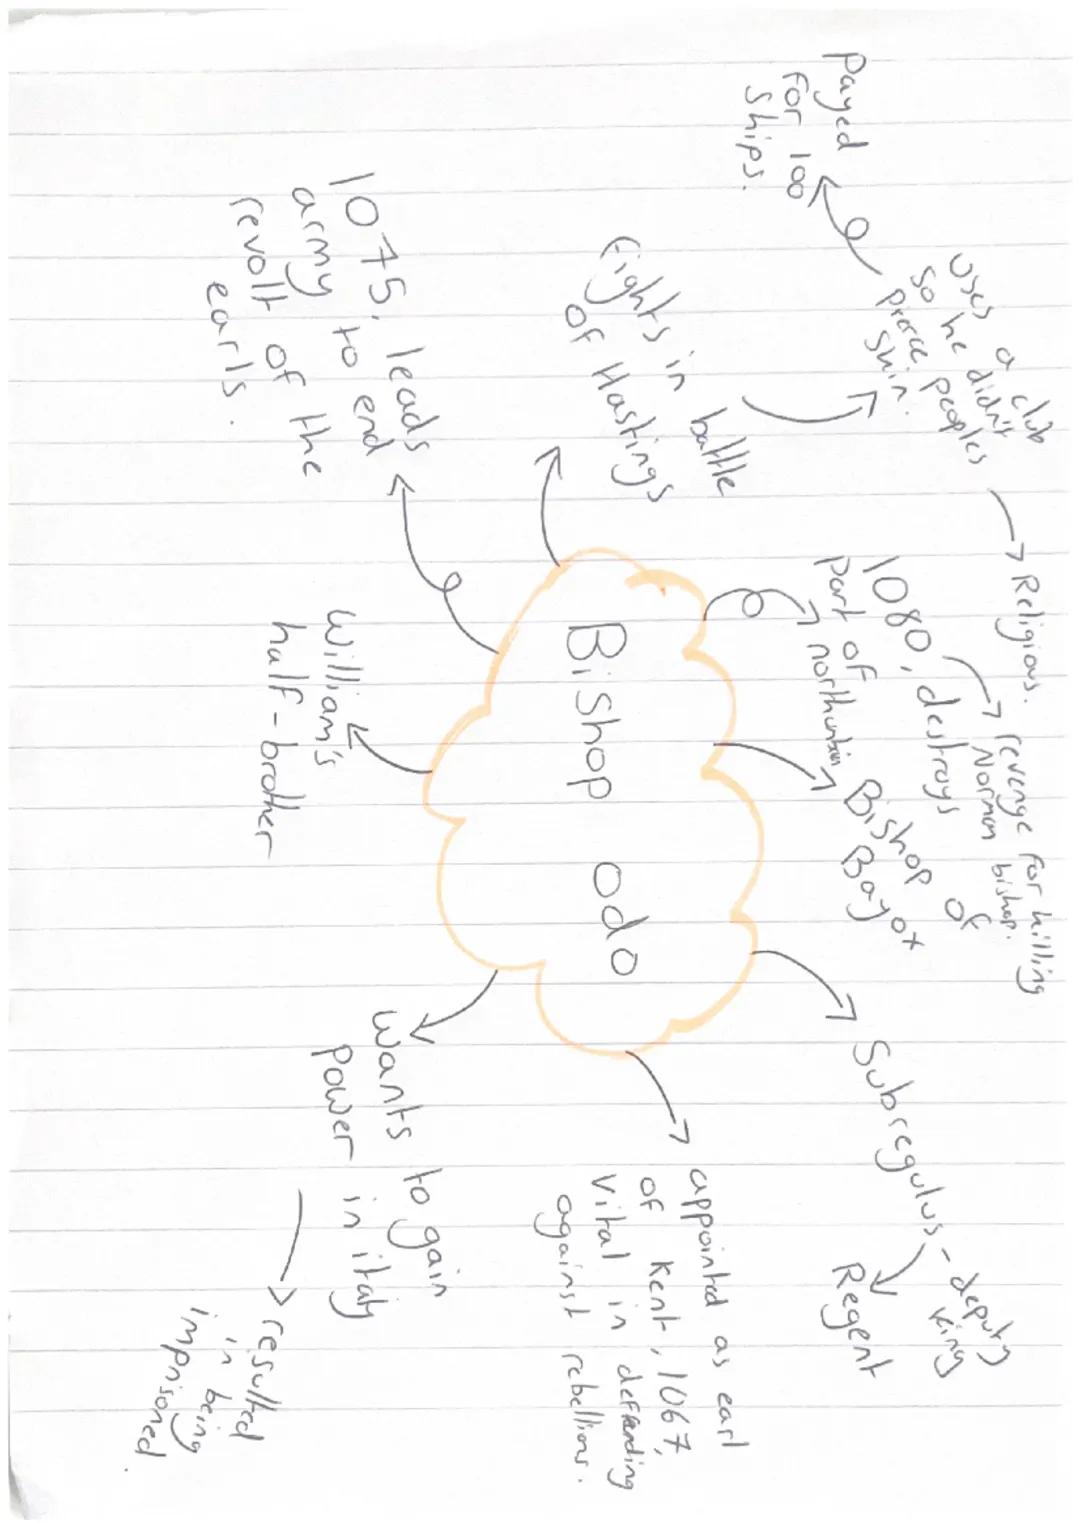 Bishop odo
Payed
for 100
ships.
uses a club
so he didn't
pierce peoples
skin.
→ Religious.
fights in battle
of Hastings
1075, leads
army to end
revolt of the
earls.
1080, destroys
part of northumbria
→ revenge for killing
Norman bishop.
Bishop of
Bayox
Subregulus - deputy
king
Regent
appointed as earl
of Kent, 1067,
Vital in deffending
against rebellions.
William's
half-brother
Wants to gain
power in italy
resulted
in being
imprisoned.